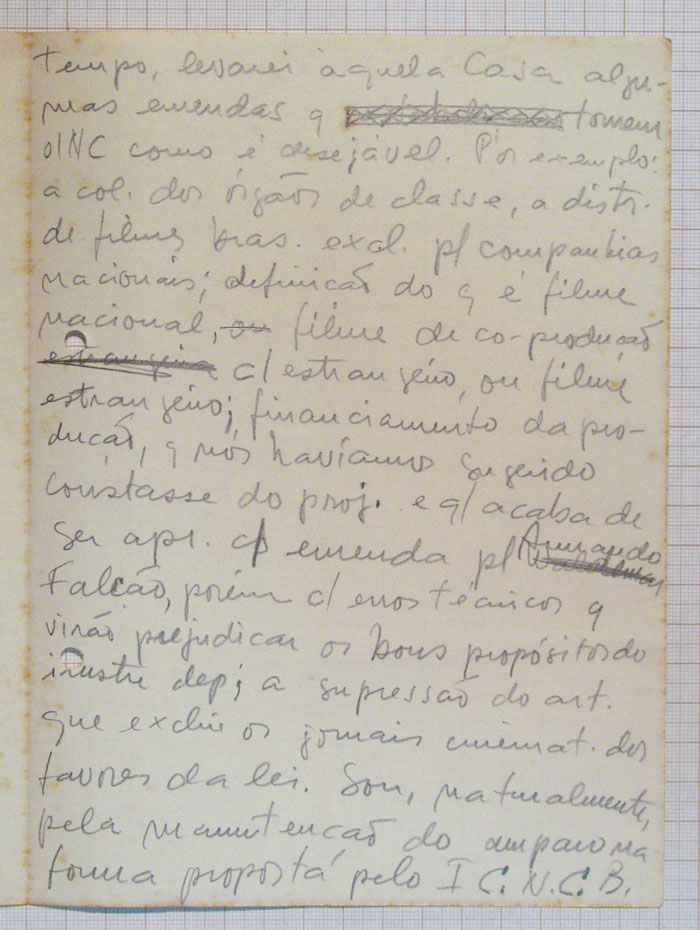 tempo, levarei àquela Casa algu-
mas emendas q tomem
o INC como é desejável. Por exemplo:
a col. dos órgãos de classe, a distr.
de filmes bras. excl. p/ companhias
nacionais; definição do q é filme
nacional, ou filme de co-produção
estrangeira c/ estrangeiro, ou filme
estrangeiro; financiamento da pro-
dução, q nós havíamos sugerido
constasse do proj. e q/ acaba de
ser apr. c/ emenda p/ Armando
Falcão, porém c/ erros técnicos q
virão prejudicar os bons propósitos do
ilustre dep; a supressão do art.
que exclui os jornais cinemat. dos
favores da lei. Sou, naturalmente,
pela manutenção do amparo na
forma proposta pelo I C. N. C. B.